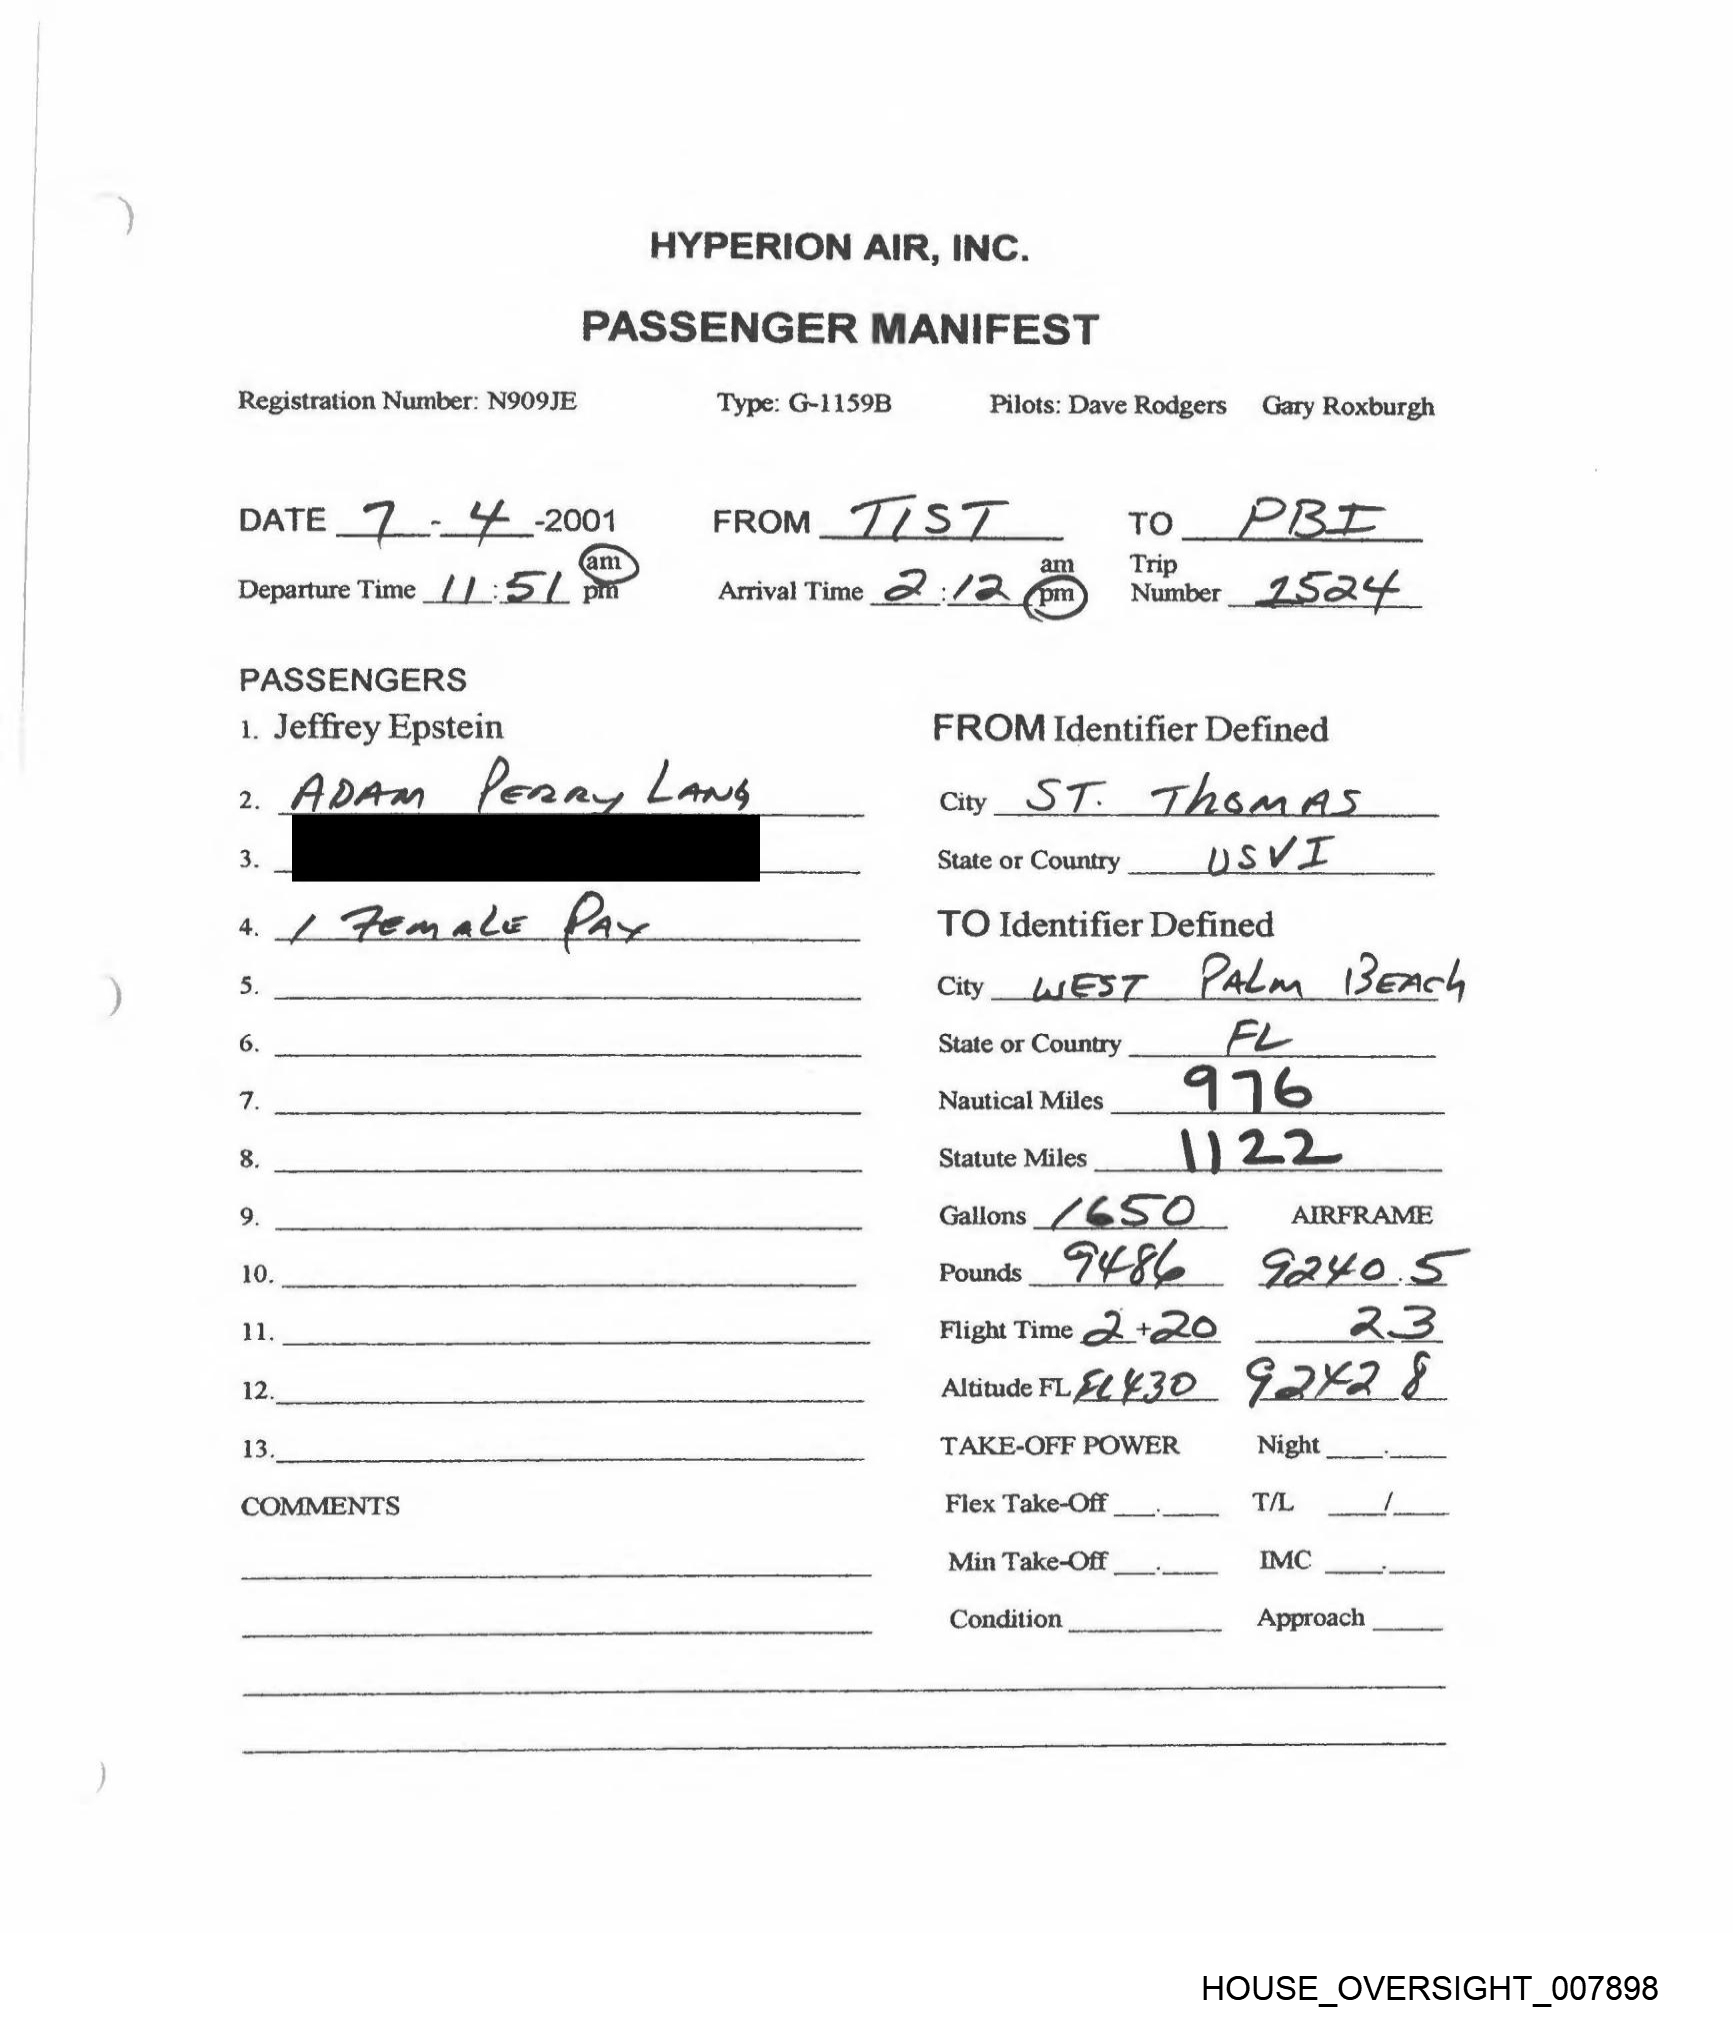 HYPERION AIR, INC.
PASSENGER MANIFEST
Registration Number: N909JE Type: G-1159B Pilots: Dave Rodgers Gary Roxburgh
DATE 7-4-2001 FROM TIST TO PBI
Departure Time 11:51 am pm Arrival Time 2:12 am pm Trip Number 1524
PASSENGERS
1. Jeffrey Epstein FROM Identifier Defined
2. ADAM PERRY LANG City ST. THOMAS
3. State or Country USVI
4. 1 FEMALE PAX TO Identifier Defined
5. City WEST PALM BEACH
6. State or Country FL
7. Nautical Miles 976
8. Statute Miles 1122
9. Gallons 1650 AIRFRAME
10. Pounds 9486 9240.5
11. Flight Time 2+20 2.3
12. Altitude FL FL430 9242 8
13. TAKE-OFF POWER Night
COMMENTS Flex Take-Off T/L /
Min Take-Off IMC
Condition Approach
HOUSE_OVERSIGHT_007898